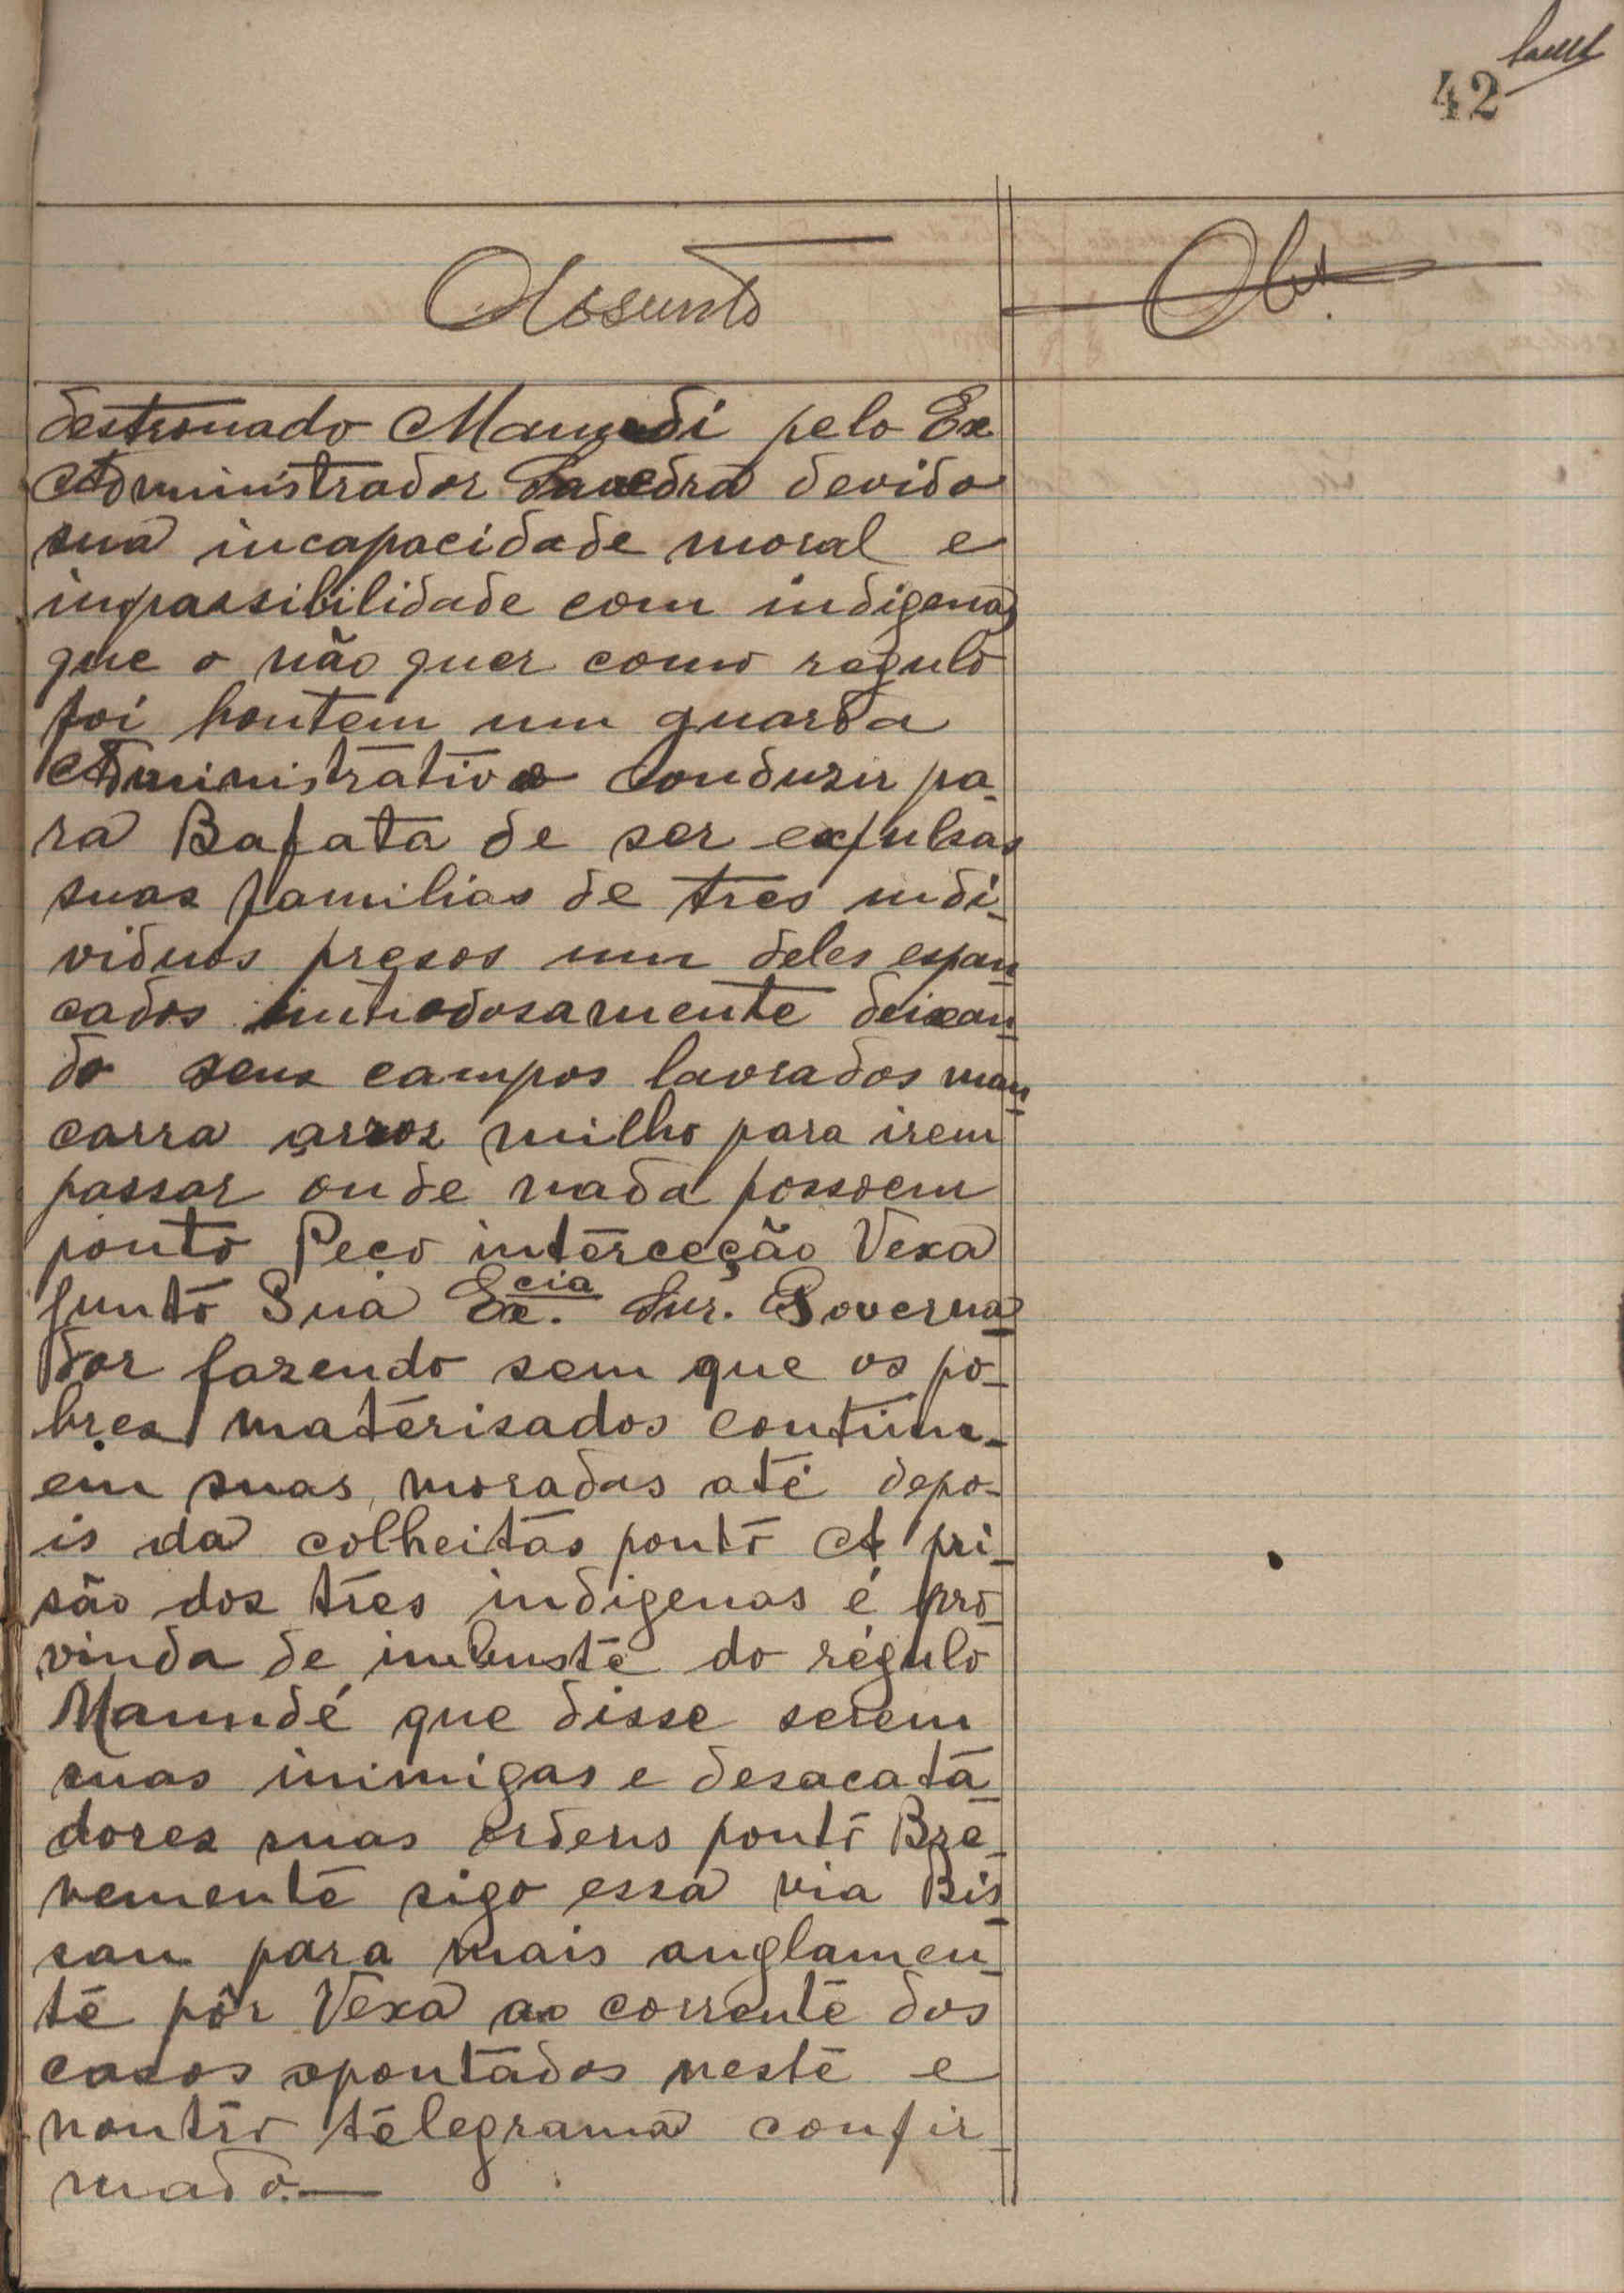 42
Assunto
Obs.
destronado Mamudi pelo Ex
Administrador Savedra devido
sua incapacidade moral e
impassibilidade com indigenas
que o não quer como regulo
foi hontem um guarda
Administrativo conduzir pa-
ra Bafata de ser expulsas
suas familias de tres indi-
viduos presos um deles espan
cados deixan-
do seus campos lavrados man
carra arroz milho para irem
passar onde nada possoem
ponto Peço interceção Vexa
junto Sua Ex.cia Snr. Governa
dor fazendo sem que os po-
bres materisados continu-
em suas moradas até depo-
is da colheitas ponto A pri-
são dos tres indigenas é pro
vinda de imbuste do régulo
Mamudé que disse serem
suas inimigas e desacata
dores suas ordens ponto Bre
vemente sigo essa via Bis
sau para mais anglamen-
te pôr Vexa ao corrente dos
casos apontados neste e
noutro telegrama confir
mado.—